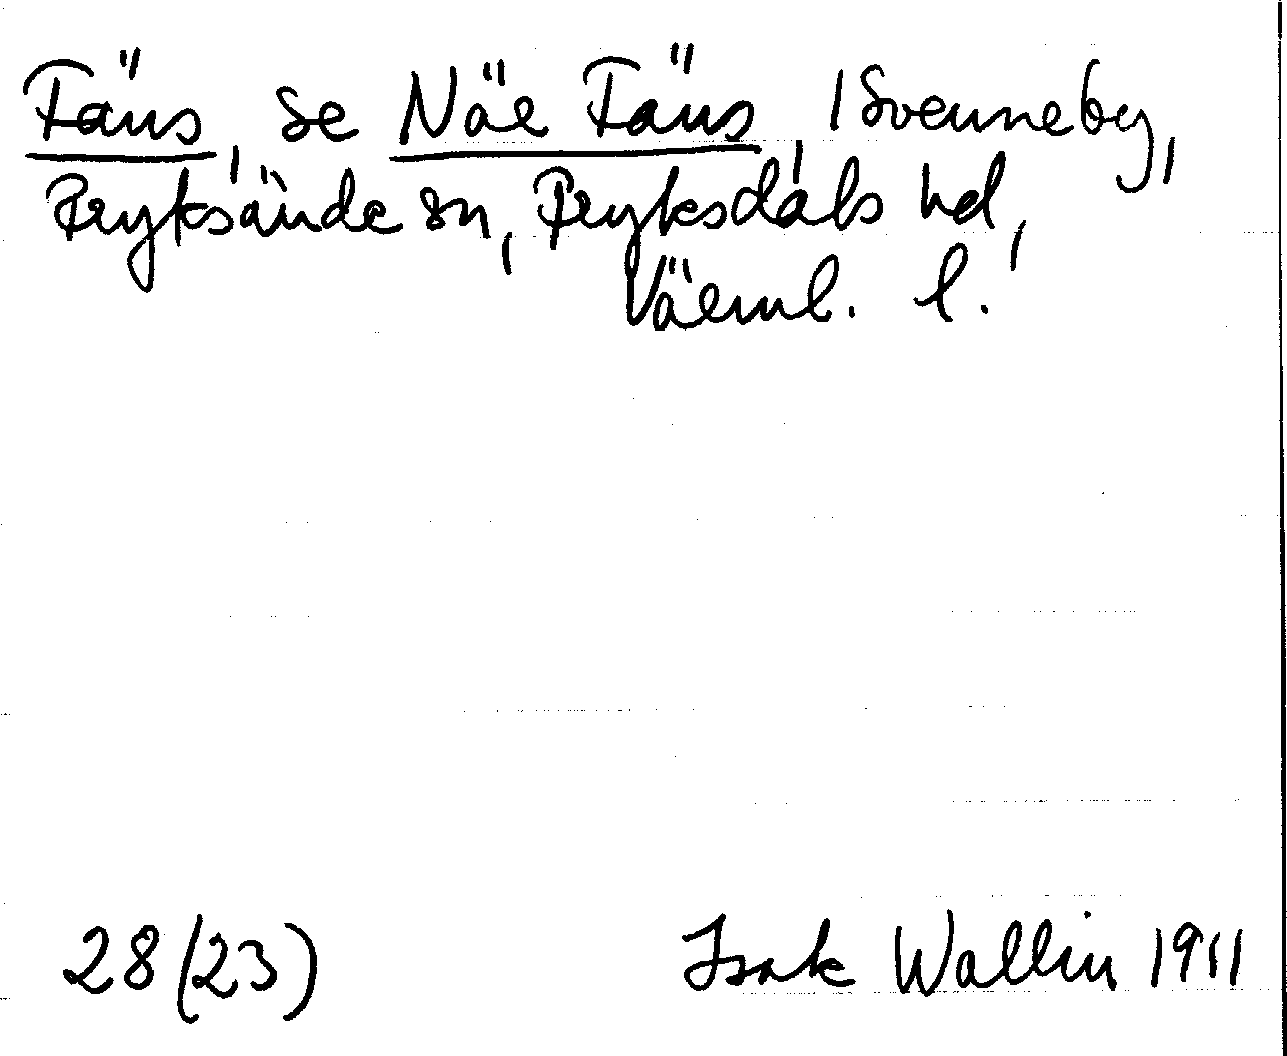 Jäns, se När Jäns, i Svenneby,
Fryksände sn, Fryksdals hd,
Värml. l.
28(23) Isak Wallin 1911